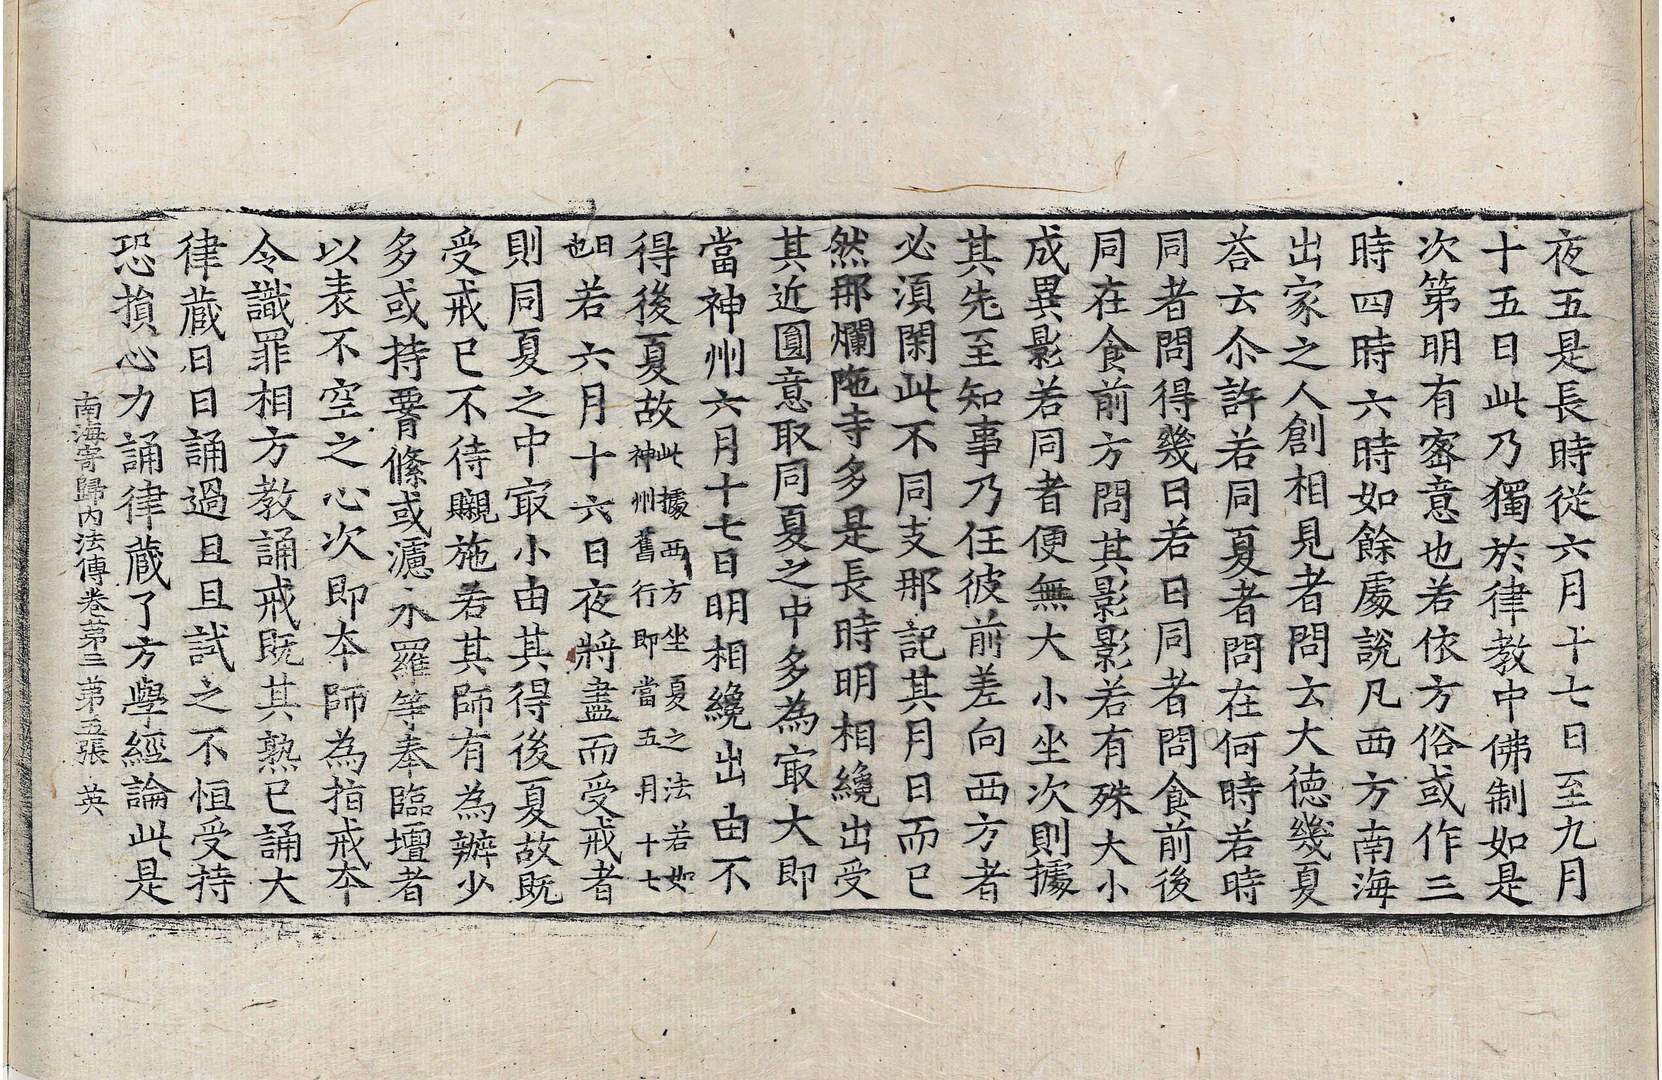 夜五是長時從六月十七日至九月
十五日此乃獨於律教中佛制如是
次第明有密意也若依方俗或作三
時四時六時如餘處說凡西方南海
出家之人創相見者問云大德幾夏
荅云尒許若同夏者問在何時若時
同者問得幾日若日同者問食前後
同在食前方問其影影若有殊大小
成異影若同者便無大小坐次則據
其先至知事乃任彼前差向西方者
必須閑此不同支那記其月日而已
然那爛陁寺多是長時明相纔出受
其近圓意取同夏之中多為㝡大即
當神州六月十七日明相纔出由不
得後夏故此據西方坐夏之法若如神州舊行即當五月十七
日也若六月十六日夜將盡而受戒者
則同夏之中㝡小由其得後夏故既
受戒已不待䞋施若其師有為辦少
多或持䙅絛或濾水羅等奉臨壇者
以表不空之心次即本師為指戒本
令識罪相方教誦戒既其熟已誦大
律藏日日誦過旦旦試之不恒受持
恐損心力誦律藏了方學經論此是
南海寄歸内法傳卷第三 第五張 英